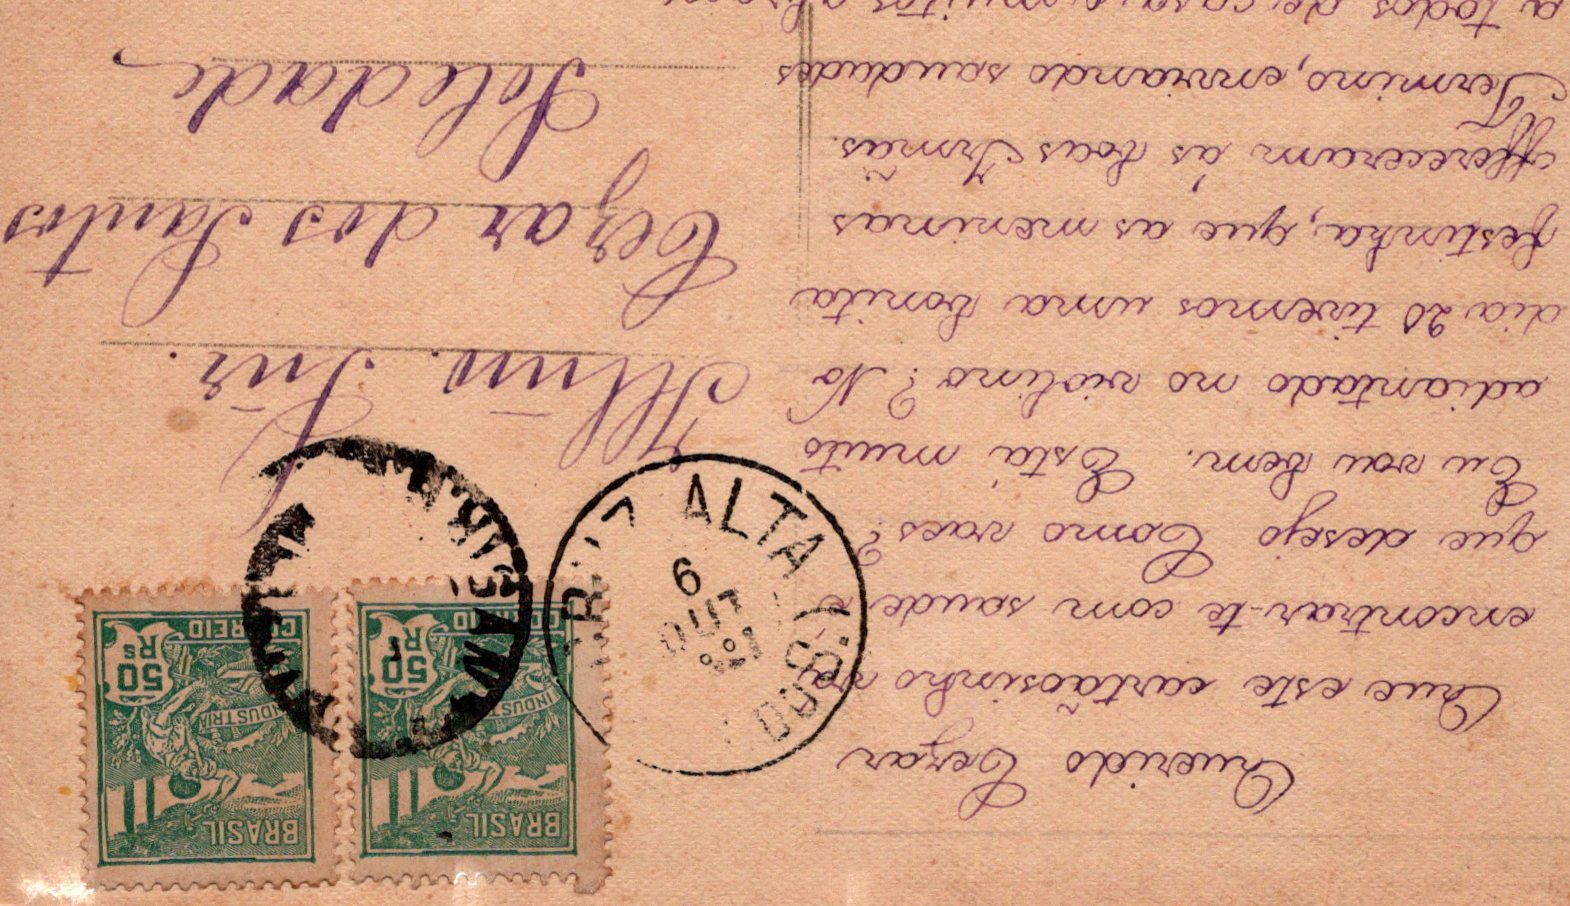 Querido Cezar
Que este cartãosinho vá
encontrar-te com saude é
que desejo Como vaes?
Eu vou bem. Está muito
adiantado no violino? No
dia 20 tivemos uma bonita
festinha, que as meninas
offereceram ás boas Irmãs.
Termino, enviando saudades
a todos de casa e muitos
BRASIL
INDUSTRIA
50
RS
CORREIO
BRASIL
INDUSTRIA
50
RS
CORREIO
CRUZ ALTA
6
OUT
Illmo. Snr.
Cezar dos Santos
Soledade